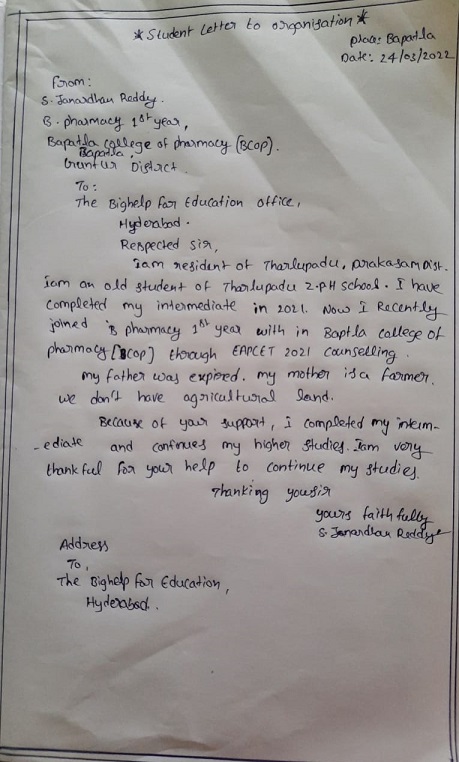 * Student Letter to organisation *
place: Bapatla
Date: 24/03/2022
From:
S. Janardhan Reddy.
B. pharmacy 1st year,
Bapatla college of pharmacy (BCOP).
Bapatla,
Guntur District.
To:
The Bighelp for Education office,
Hyderabad.
Respected sir,
Iam resident of Tharlupadu, prakasam Dist.
Iam an old student of Tharlupadu Z.P.H school. I have
completed my intermediate in 2021. Now I Recently
joined B pharmacy 1st year with in Baptla college of
pharmacy [BCOP] through EAPCET 2021 counselling.
my father was expired. my mother is a farmer.
we don't have agricultural land.
Because of your support, i completed my interm-
-ediate and continues my higher studies. Iam very
thankful for your help to continue my studies.
Thanking yousir
yours faithfully
S. Janardhan Reddy
Address
To,
The Bighelp for Education,
Hyderabad.